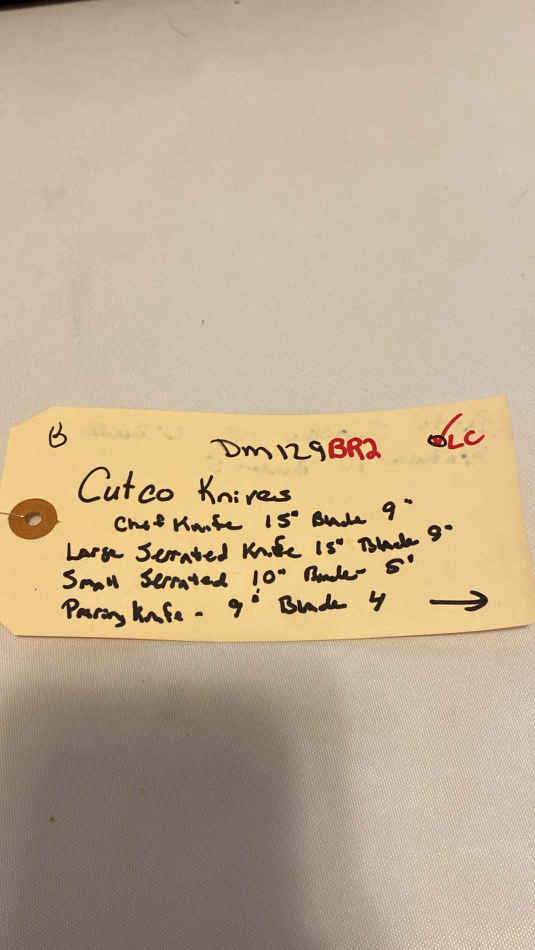 B
Dm129BR2 LC
Cutco Knives
Chef Knife 15" Blade 9"
Large Serrated Knife 15" Blade 9"
Small Serrated 10" Blade- 5"
Paring Knife - 9" Blade 4 →